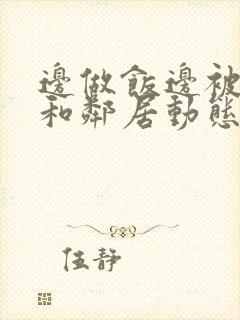 邊做飯邊被
和鄰居動態
伍靜